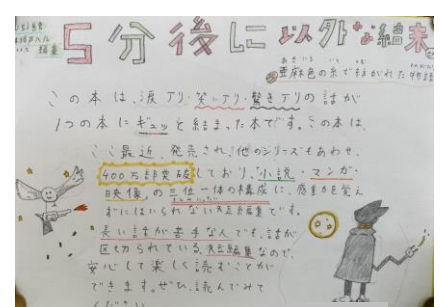 5分後に以外な結末
亜麻色の糸で紡がれた物語
この本は、涙アリ・笑いアリ・驚きアリの話が
1つの本にギュッと結まった本です。この本は、
ここ最近 発売され、他のシリーズもあわせ、
400万部突破しており、小説・マンガ・
映像の三位一体の構成に、感動力を覚え
ずにはいられない短編集です。
長い話が苦手な人でも、話が
区切られている、短編集なので、
安心して楽しく読むことが
できます。ぜひ、読んでみて
ください。